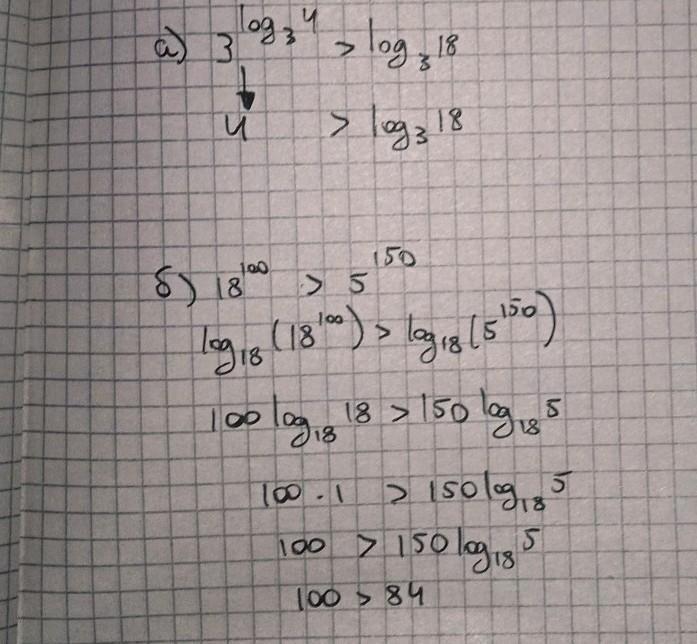 а) 3^log₃4 > log₃18
4 > log₃18
б) 18^100 > 5^150
log₁₈(18^100) > log₁₈(5^150)
100 log₁₈ 18 > 150 log₁₈ 5
100 · 1 > 150 log₁₈ 5
100 > 150 log₁₈ 5
100 > 84